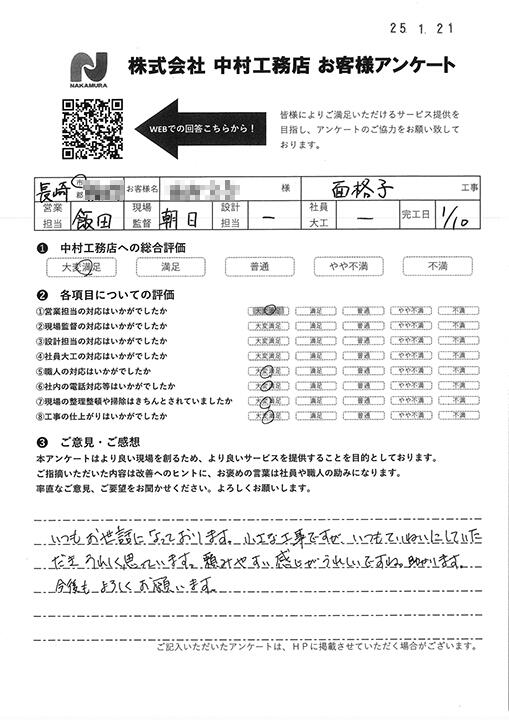 25.1.21
NAKAMURA
株式会社 中村工務店 お客様アンケート
WEBでの回答こちらから！
皆様によりご満足いただけるサービス提供を
目指し、アンケートのご協力をお願い致して
おります。
長崎 市 郡 お客様名 様 面格子 工事
営業担当 飯田 現場監督 朝日 設計担当 ー 社員大工 ー 完工日 1/10
❶ 中村工務店への総合評価
大変満足 満足 普通 やや不満 不満
❷ 各項目についての評価
①営業担当の対応はいかがでしたか 大変満足 満足 普通 やや不満 不満
②現場監督の対応はいかがでしたか 大変満足 満足 普通 やや不満 不満
③設計担当の対応はいかがでしたか 大変満足 満足 普通 やや不満 不満
④社員大工の対応はいかがでしたか 大変満足 満足 普通 やや不満 不満
⑤職人の対応はいかがでしたか 大変満足 満足 普通 やや不満 不満
⑥社内の電話対応等はいかがでしたか 大変満足 満足 普通 やや不満 不満
⑦現場の整理整頓や掃除はきちんとされていましたか 大変満足 満足 普通 やや不満 不満
⑧工事の仕上がりはいかがでしたか 大変満足 満足 普通 やや不満 不満
❸ ご意見・ご感想
本アンケートはより良い現場を創るため、より良いサービスを提供することを目的としております。
ご指摘いただいた内容は改善へのヒントに、お褒めの言葉は社員や職人の励みになります。
率直なご意見、ご要望をお聞かせください。よろしくお願いします。
いつもお世話になっております。小さな工事ですが、いつもていねいにしていた
だき うれしく思っています。頼みやすい感じがうれしいですね。助かります。
今後も よろしくお願いします。
ご記入いただいたアンケートは、HPに掲載させていただく場合がございます。